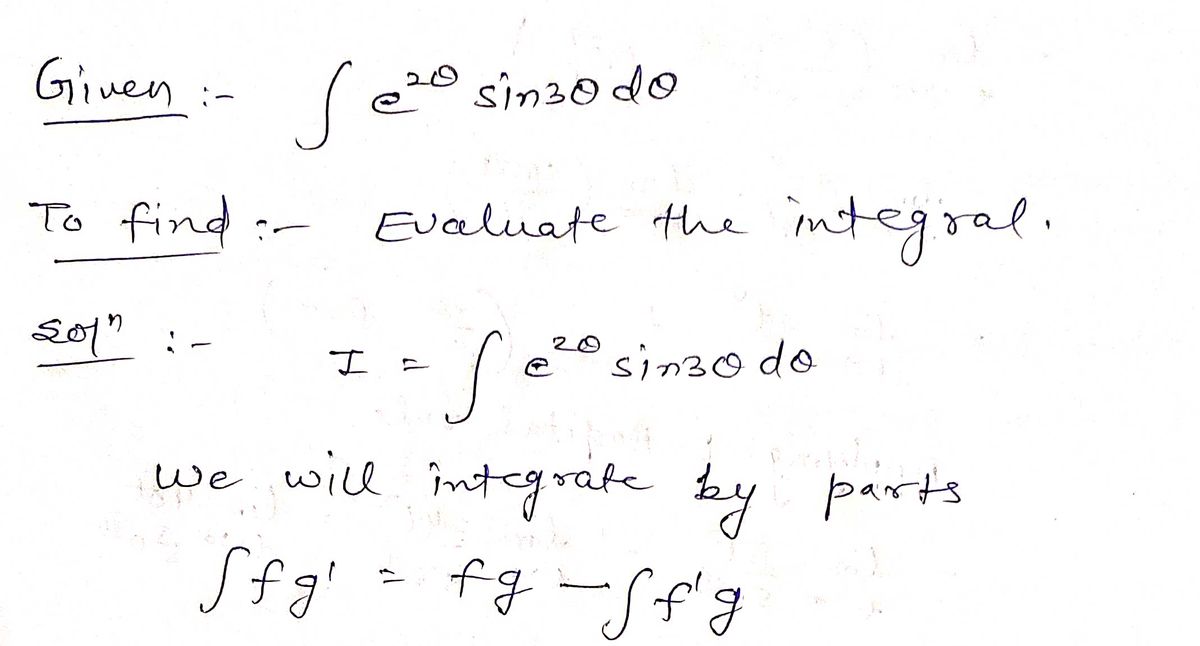 Given :- ∫ e^{2θ} sin3θ dθ
To find :- Evaluate the integral.
Solⁿ :- I = ∫ e^{2θ} sin3θ dθ
We will integrate by parts
∫fg' = fg - ∫f'g